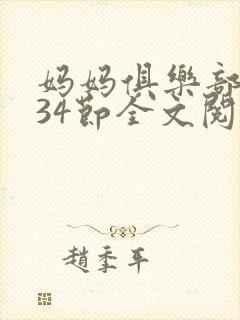 妈妈俱樂部
34節全文閱
趙季平